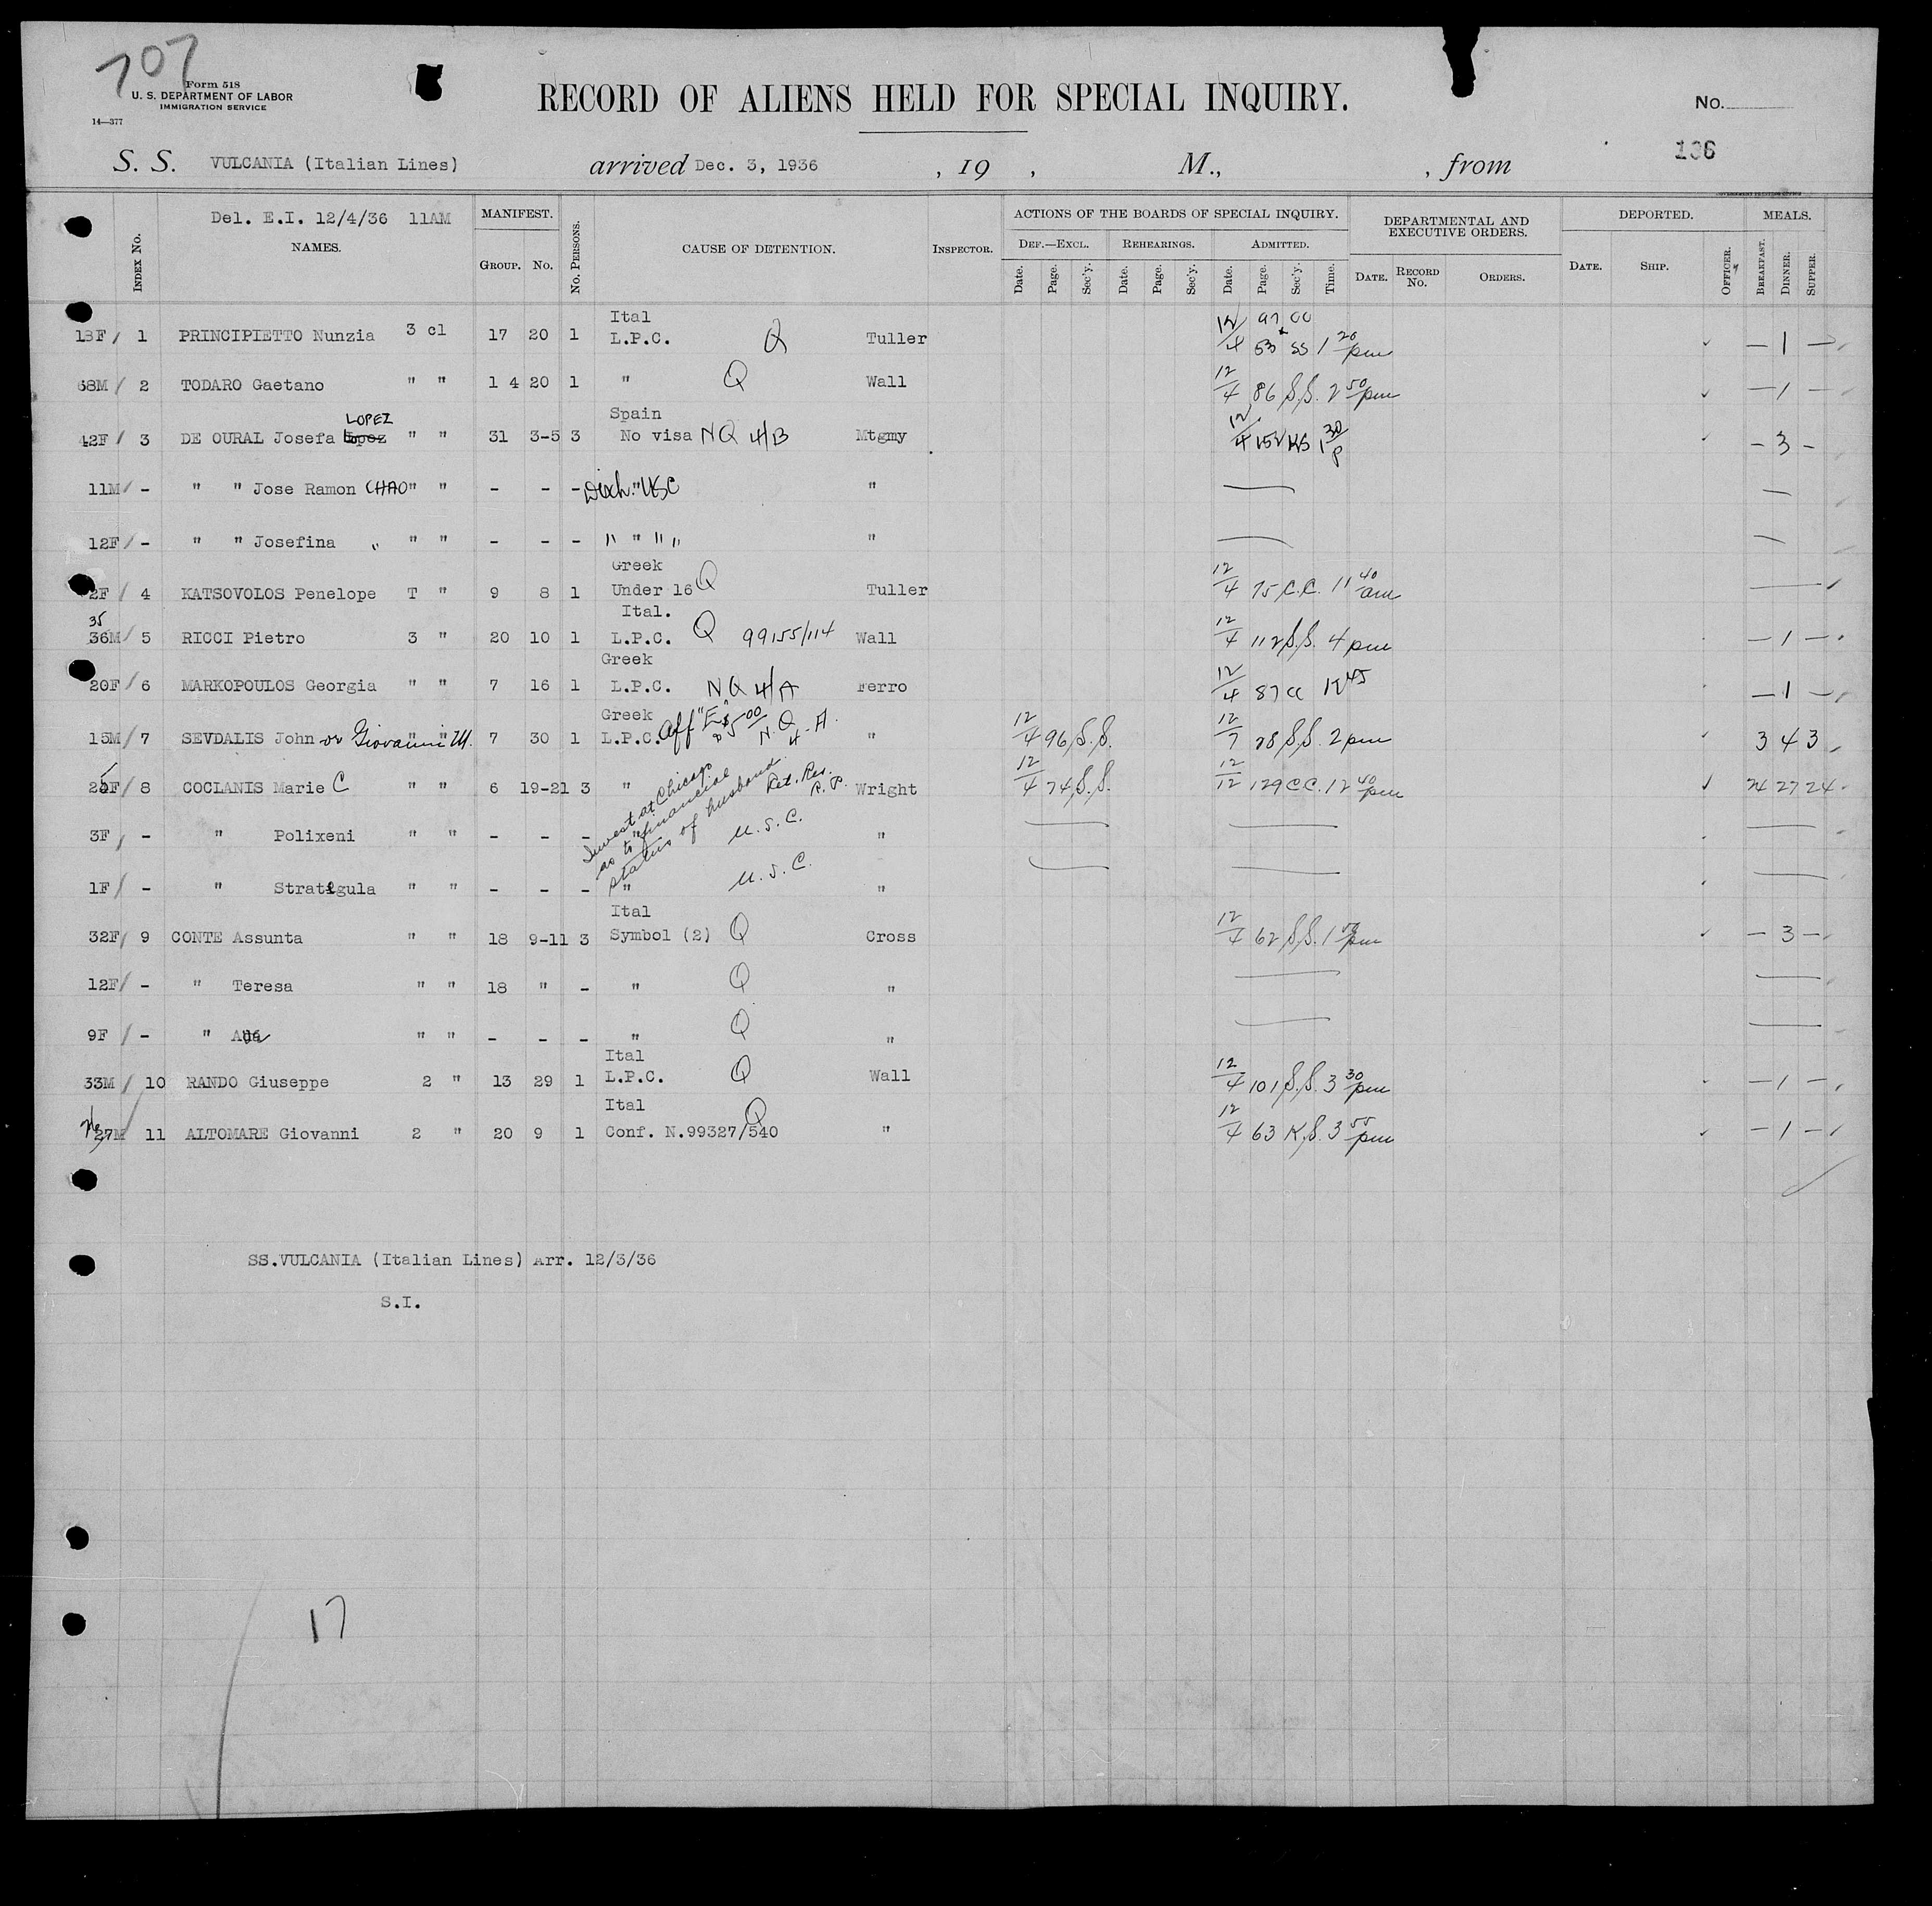 707
Form 518
U. S. DEPARTMENT OF LABOR
IMMIGRATION SERVICE
14—377
RECORD OF ALIENS HELD FOR SPECIAL INQUIRY.
No.
136
S. S. VULCANIA (Italian Lines) arrived Dec. 3, 1936 , 19 , M., , from
Del. E.I. 12/4/36 11AM
INDEX No. NAMES. MANIFEST. GROUP. No. No. PERSONS. CAUSE OF DETENTION. INSPECTOR. ACTIONS OF THE BOARDS OF SPECIAL INQUIRY. DEF.—EXCL. Date. Page. Sec'y. REHEARINGS. Date. Page. Sec'y. ADMITTED. Date. Page. Sec'y. Time. DEPARTMENTAL AND EXECUTIVE ORDERS. DATE. RECORD No. ORDERS. DEPORTED. DATE. SHIP. OFFICER. MEALS. BREAKFAST. DINNER. SUPPER.
Ital
18F / 1 PRINCIPIETTO Nunzia 3 cl 17 20 1 L.P.C. Q Tuller 12/4 53 SS 1 20 pm — 1 —
68M / 2 TODARO Gaetano " " 1 4 20 1 " Q Wall 12/4 86 S.S. 2 50 pm — 1 —
Spain
42F / 3 DE OURAL Josefa Lopez LOPEZ " " 31 3-5 3 No visa NQ 4/B Mtgmy 12/4 152 KS 1 30 P — 3 -
11M / - " " Jose Ramon CHAO " " - - - Disch. " USC " —
12F / - " " Josefina " " " - - - " " " " " —
Greek
2F / 4 KATSOVOLOS Penelope T " 9 8 1 Under 16 Q Tuller 12/4 75 C.C. 11 40 am —
Ital.
35
36M / 5 RICCI Pietro 3 " 20 10 1 L.P.C. Q 99155/114 Wall 12/4 112 S.S. 4 pm — 1 —
Greek
20F / 6 MARKOPOULOS Georgia " " 7 16 1 L.P.C. NQ 4/A Ferro 12/4 87 CC 12 45 — 1 —
Greek
15M / 7 SEVDALIS John or Giovanni M. " " 7 30 1 L.P.C. Aff "E" $500 N.Q. 4-A. " 12/4 96 S.S. 12/7 28 S.S. 2 pm 3 4 3
/ 8 COCLANIS Marie C " " 6 19-21 3 " Wright 12/4 74 S.S. 12/12 129 C.C. 12 40 pm 24 27 24
Invest. at Chicago as to financial status of husband. Ret. Res. R.P.
3F / - " Polixeni " " - - - " U.S.C. " —
1F / - " Stratigula " " - - - " U.S.C. " —
Ital
32F / 9 CONTE Assunta " " 18 9-11 3 Symbol (2) Q Cross 12/4 62 S.S. 1 pm — 3 —
12F / - " Teresa " " 18 " - " Q " —
9F / - " " " - - - " Q " —
Ital
33M / 10 RANDO Giuseppe 2 " 13 29 1 L.P.C. Q Wall 12/4 101 S.S. 3 30 pm — 1 —
Ital
27M / 11 ALTOMARE Giovanni 2 " 20 9 1 Conf. N.99327/540 Q " 12/4 63 K.S. 3 55 pm — 1 —
SS.VULCANIA (Italian Lines) Arr. 12/3/36
S.I.
17